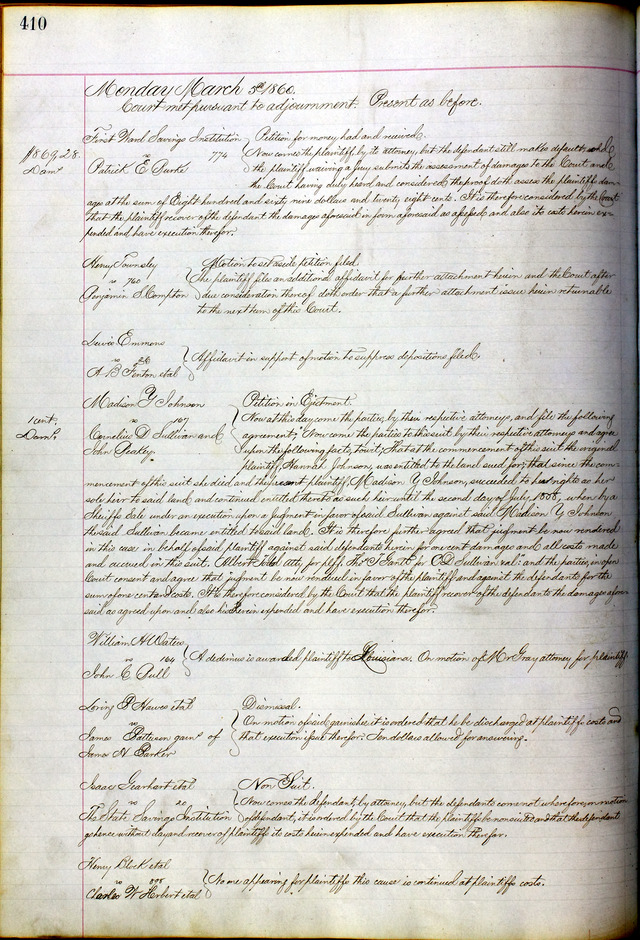 410
Monday March 5th 1860.
Court met pursuant to adjournment. Present as before.
First Ward Savings Institution
vs 774
Patrick E Burke
$869.28.
Dam.s
Petition for money had and received.
Now comes the plaintiff by its attorney, but the defendant still makes default; and
the plaintiff waiving a jury submits the assessment of damages to the Court and
the Court having duly heard and considered the proof doth assess the plaintiffs dam-
ages at the sum of Eight hundred and sixty nine dollars and twenty eight cents. It is therefore considered by the Court
that the plaintiff recover of the defendant the damages aforesaid in form aforesaid as assessed and also its costs herein ex-
pended and have execution therefor.
Henry Townsley
vs 760
Benjamin S. Compton
Motion to set aside petition filed.
The plaintiff files an additional affidavit for further attachment herein and the Court after
due consideration thereof doth order that a further attachment issue herein returnable
to the next term of this Court.
Lewis Emmons
vs 26
A. B. Fenton et al
Affidavit in support of motion to suppress depositions filed.
Madison Y Johnson
vs 107
Cornelius D Sullivan and
John Leakey.
1 cent.
Dam.s
Petition in Ejectment.
Now at this day come the parties, by their respective attorneys, and file the following
agreement; "Now come the parties to this suit by their respective attorneys and agree
upon the following facts, towit; That at the commencement of this suit the original
plaintiff, Hannah Johnson, was entitled to the land sued for; that since the com-
mencement of this suit she died and the present plaintiff, Madison Y Johnson, succeeded to her rights as her
sole heir to said land and continued entitled thereto as such heir until the second day of July, 1858, when by a
Sheriffs Sale under an execution upon a judgment in favor of said Sullivan against said Madison Y Johnson
the said Sullivan became entitled to said land. It is therefore further agreed that judgment be now rendered
in this case in behalf of said plaintiff against said defendants herein for one cent damages and all costs made
and accrued in this suit. Albert Todd atty. for plff. Thos T Gantt for C.D. Sullivan et al": and the parties, in open
Court consent and agree that judgment be now rendered in favor of the plaintiff and against the defendants for the
sum of one cent and costs. It is therefore considered by the Court that the plaintiff recover of the defendants the damages afore-
said as agreed upon and also his costs herein expended and have execution therefor.
William H Waters
vs 164
John C Bull
A dedimus is awarded plaintiff to Louisiana. On motion of Mr Gray attorney for plaintiff
Loring P Hawes et al
vs
James Patterson garn.e of
James A Parker
Dismissal.
On motion of said garnishee it is ordered that he be discharged at plaintiffs costs and
that execution issue therefor. Ten dollars allowed for answering.
Isaac Gearhart et al
vs 20
The State Savings Institution
Non Suit.
Now comes the defendant, by attorney, but the defendants come not wherefore, on motion
of defendant, it is ordered by the Court that the plaintiffs be nonsuited and that the defendant
go hence without day and recover of plaintiff its costs herein expended and have execution therefor.
Henry Block et al
vs
Charles W Herbert et al
No one appearing for plaintiffs this cause is continued at plaintiffs costs.